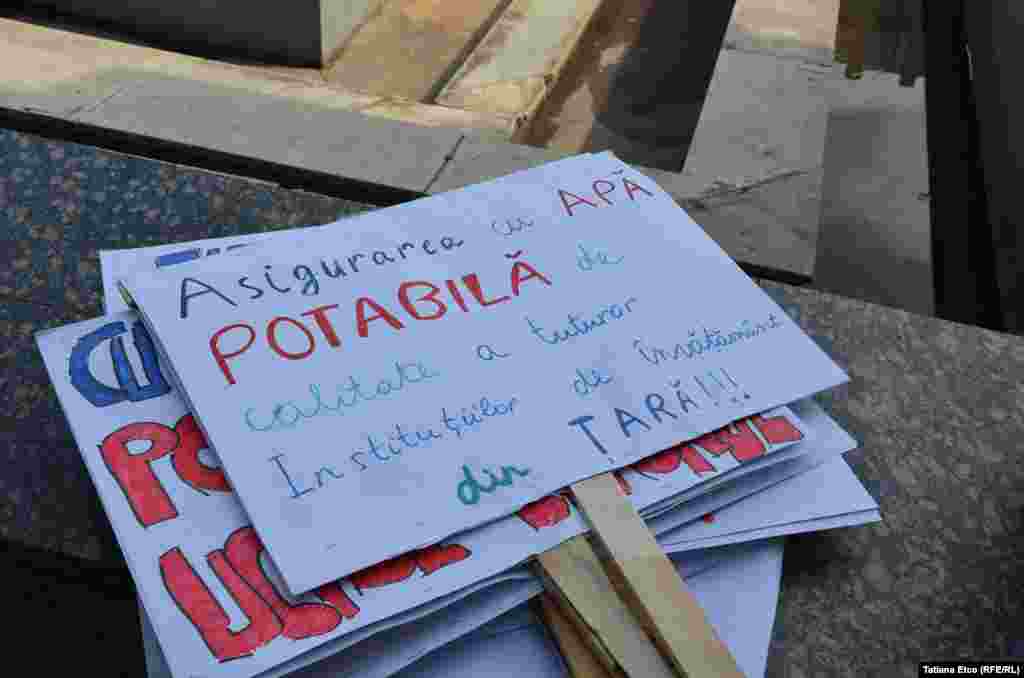 Asigurarea cu APĂ
POTABILĂ de
calitate a tuturor
Instituțiilor de învățământ
din ȚARĂ!!!
Tatiana Etco (RFE/RL)